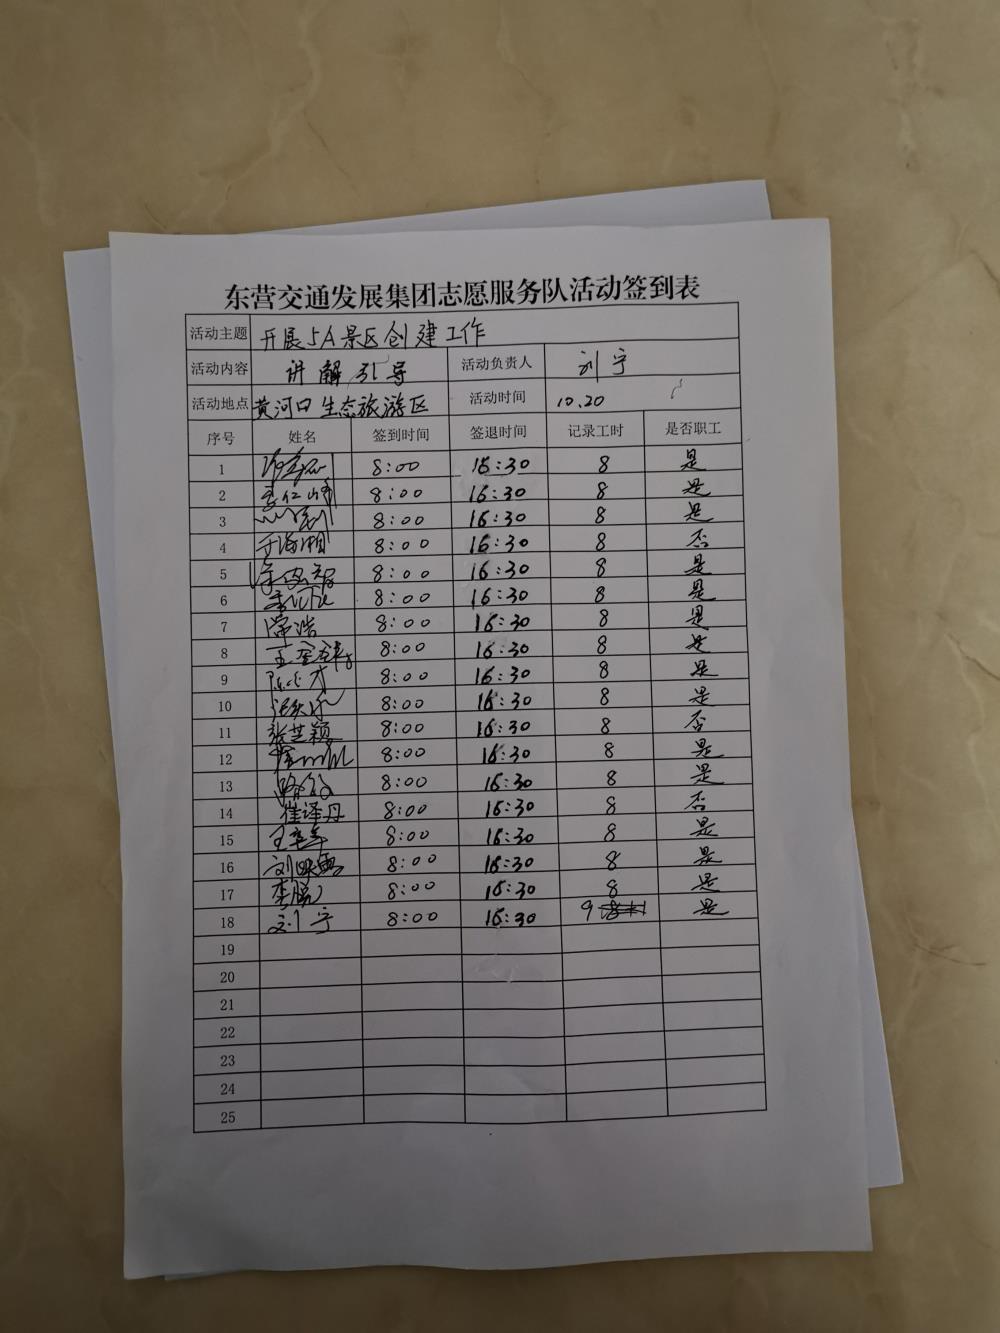 东营交通发展集团志愿服务队活动签到表
活动主题 开展5A景区创建工作
活动内容 讲解引导 活动负责人 刘宁
活动地点 黄河口生态旅游区 活动时间 10.20
序号 姓名 签到时间 签退时间 记录工时 是否职工
1 8:00 16:30 8 是
2 8:00 16:30 8 是
3 8:00 16:30 8 是
4 8:00 16:30 8 否
5 8:00 16:30 8 是
6 8:00 16:30 8 是
7 常浩 8:00 16:30 8 是
8 8:00 16:30 8 是
9 8:00 16:30 8 是
10 8:00 16:30 8 是
11 张芝颖 8:00 16:30 8 否
12 8:00 16:30 8 是
13 8:00 16:30 8 是
14 崔译丹 8:00 16:30 8 否
15 8:00 16:30 8 是
16 8:00 16:30 8 是
17 李鹏 8:00 16:30 8 是
18 刘宁 8:00 16:30 9 是
19
20
21
22
23
24
25